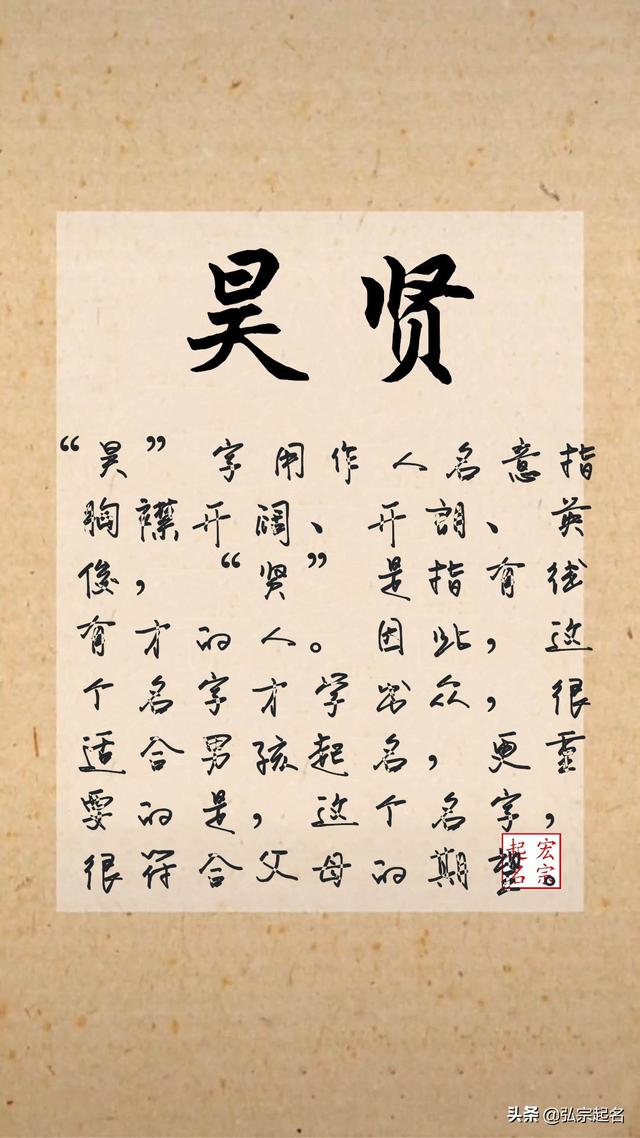 昊贤
“昊”字用作人名意指
胸襟开阔、开朗、英
俊，“贤”是指有德
有才的人。因此，这
个名字才学出众，很
适合男孩起名，更重
要的是，这个名字，
很符合父母的期望。
宏宗
起名
头条 @弘宗起名